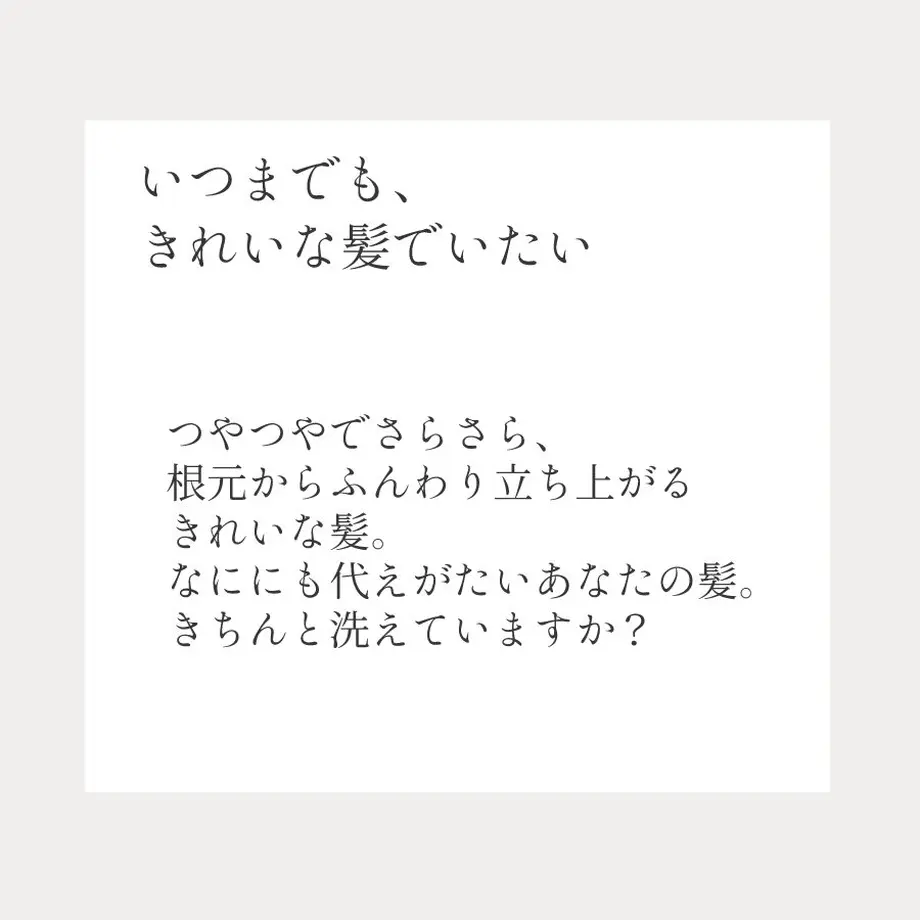 いつまでも、
きれいな髪でいたい
つやつやでさらさら、
根元からふんわり立ち上がる
きれいな髪。
なににも代えがたいあなたの髪。
きちんと洗えていますか？